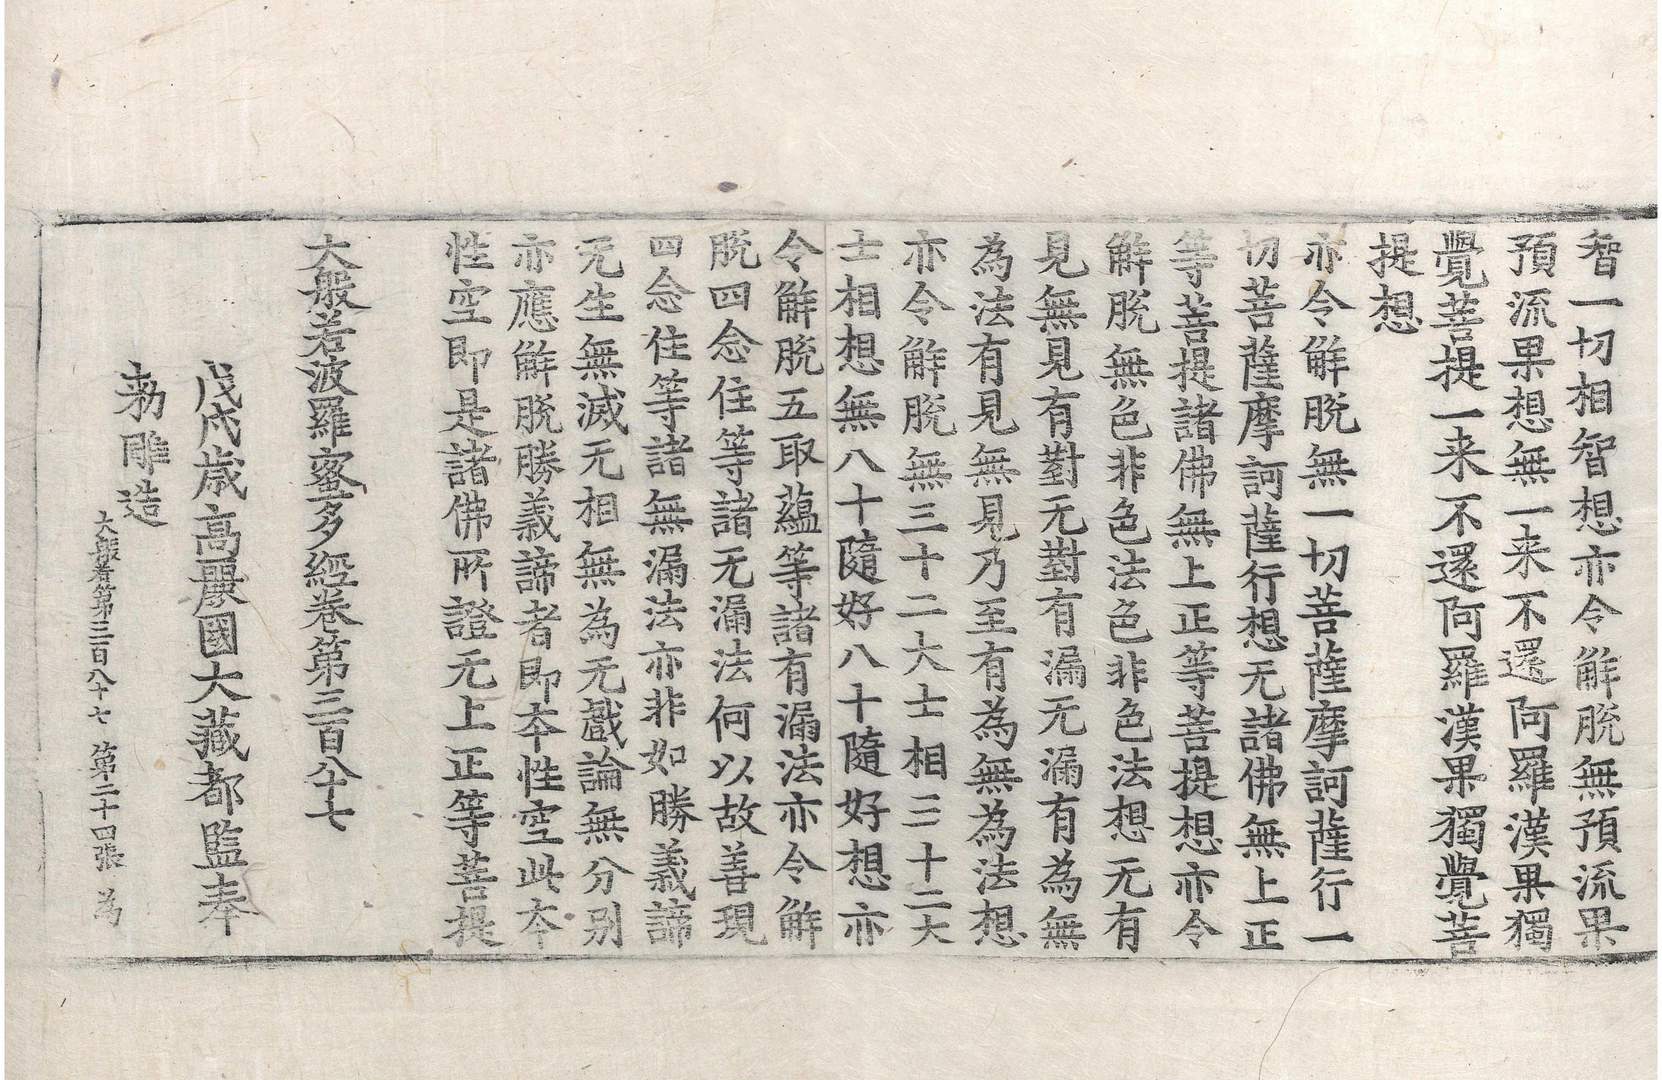 智一切相智想亦令解脫無預流果
預流果想無一来不還阿羅漢果獨
覺菩提一来不還阿羅漢果獨覺菩
提想
亦令解脫無一切菩薩摩訶薩行一
切菩薩摩訶薩行想无諸佛無上正
等菩提諸佛無上正等菩提想亦令
解脫無色非色法色非色法想无有
見無見有對无對有漏无漏有為無
為法有見無見乃至有為無為法想
亦令解脫無三十二大士相三十二大
士相想無八十隨好八十隨好想亦
令解脫五取蘊等諸有漏法亦令解
脫四念住等諸无漏法何以故善現
四念住等諸無漏法亦非如勝義諦
无生無滅无相無為无戲論無分别
亦應解脫勝義諦者即夲性空此夲
性空即是諸佛所證无上正等菩提
大般若波羅蜜多經卷第三百八十七
戊戌歳高麗國大藏都監奉
勑雕造
大般若第三百八十七 第二十四張 為